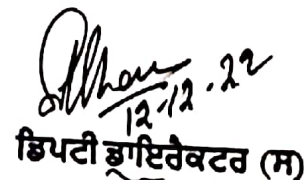 12-12-22
ਡਿਪਟੀ ਡਾਇਰੈਕਟਰ (ਸ)